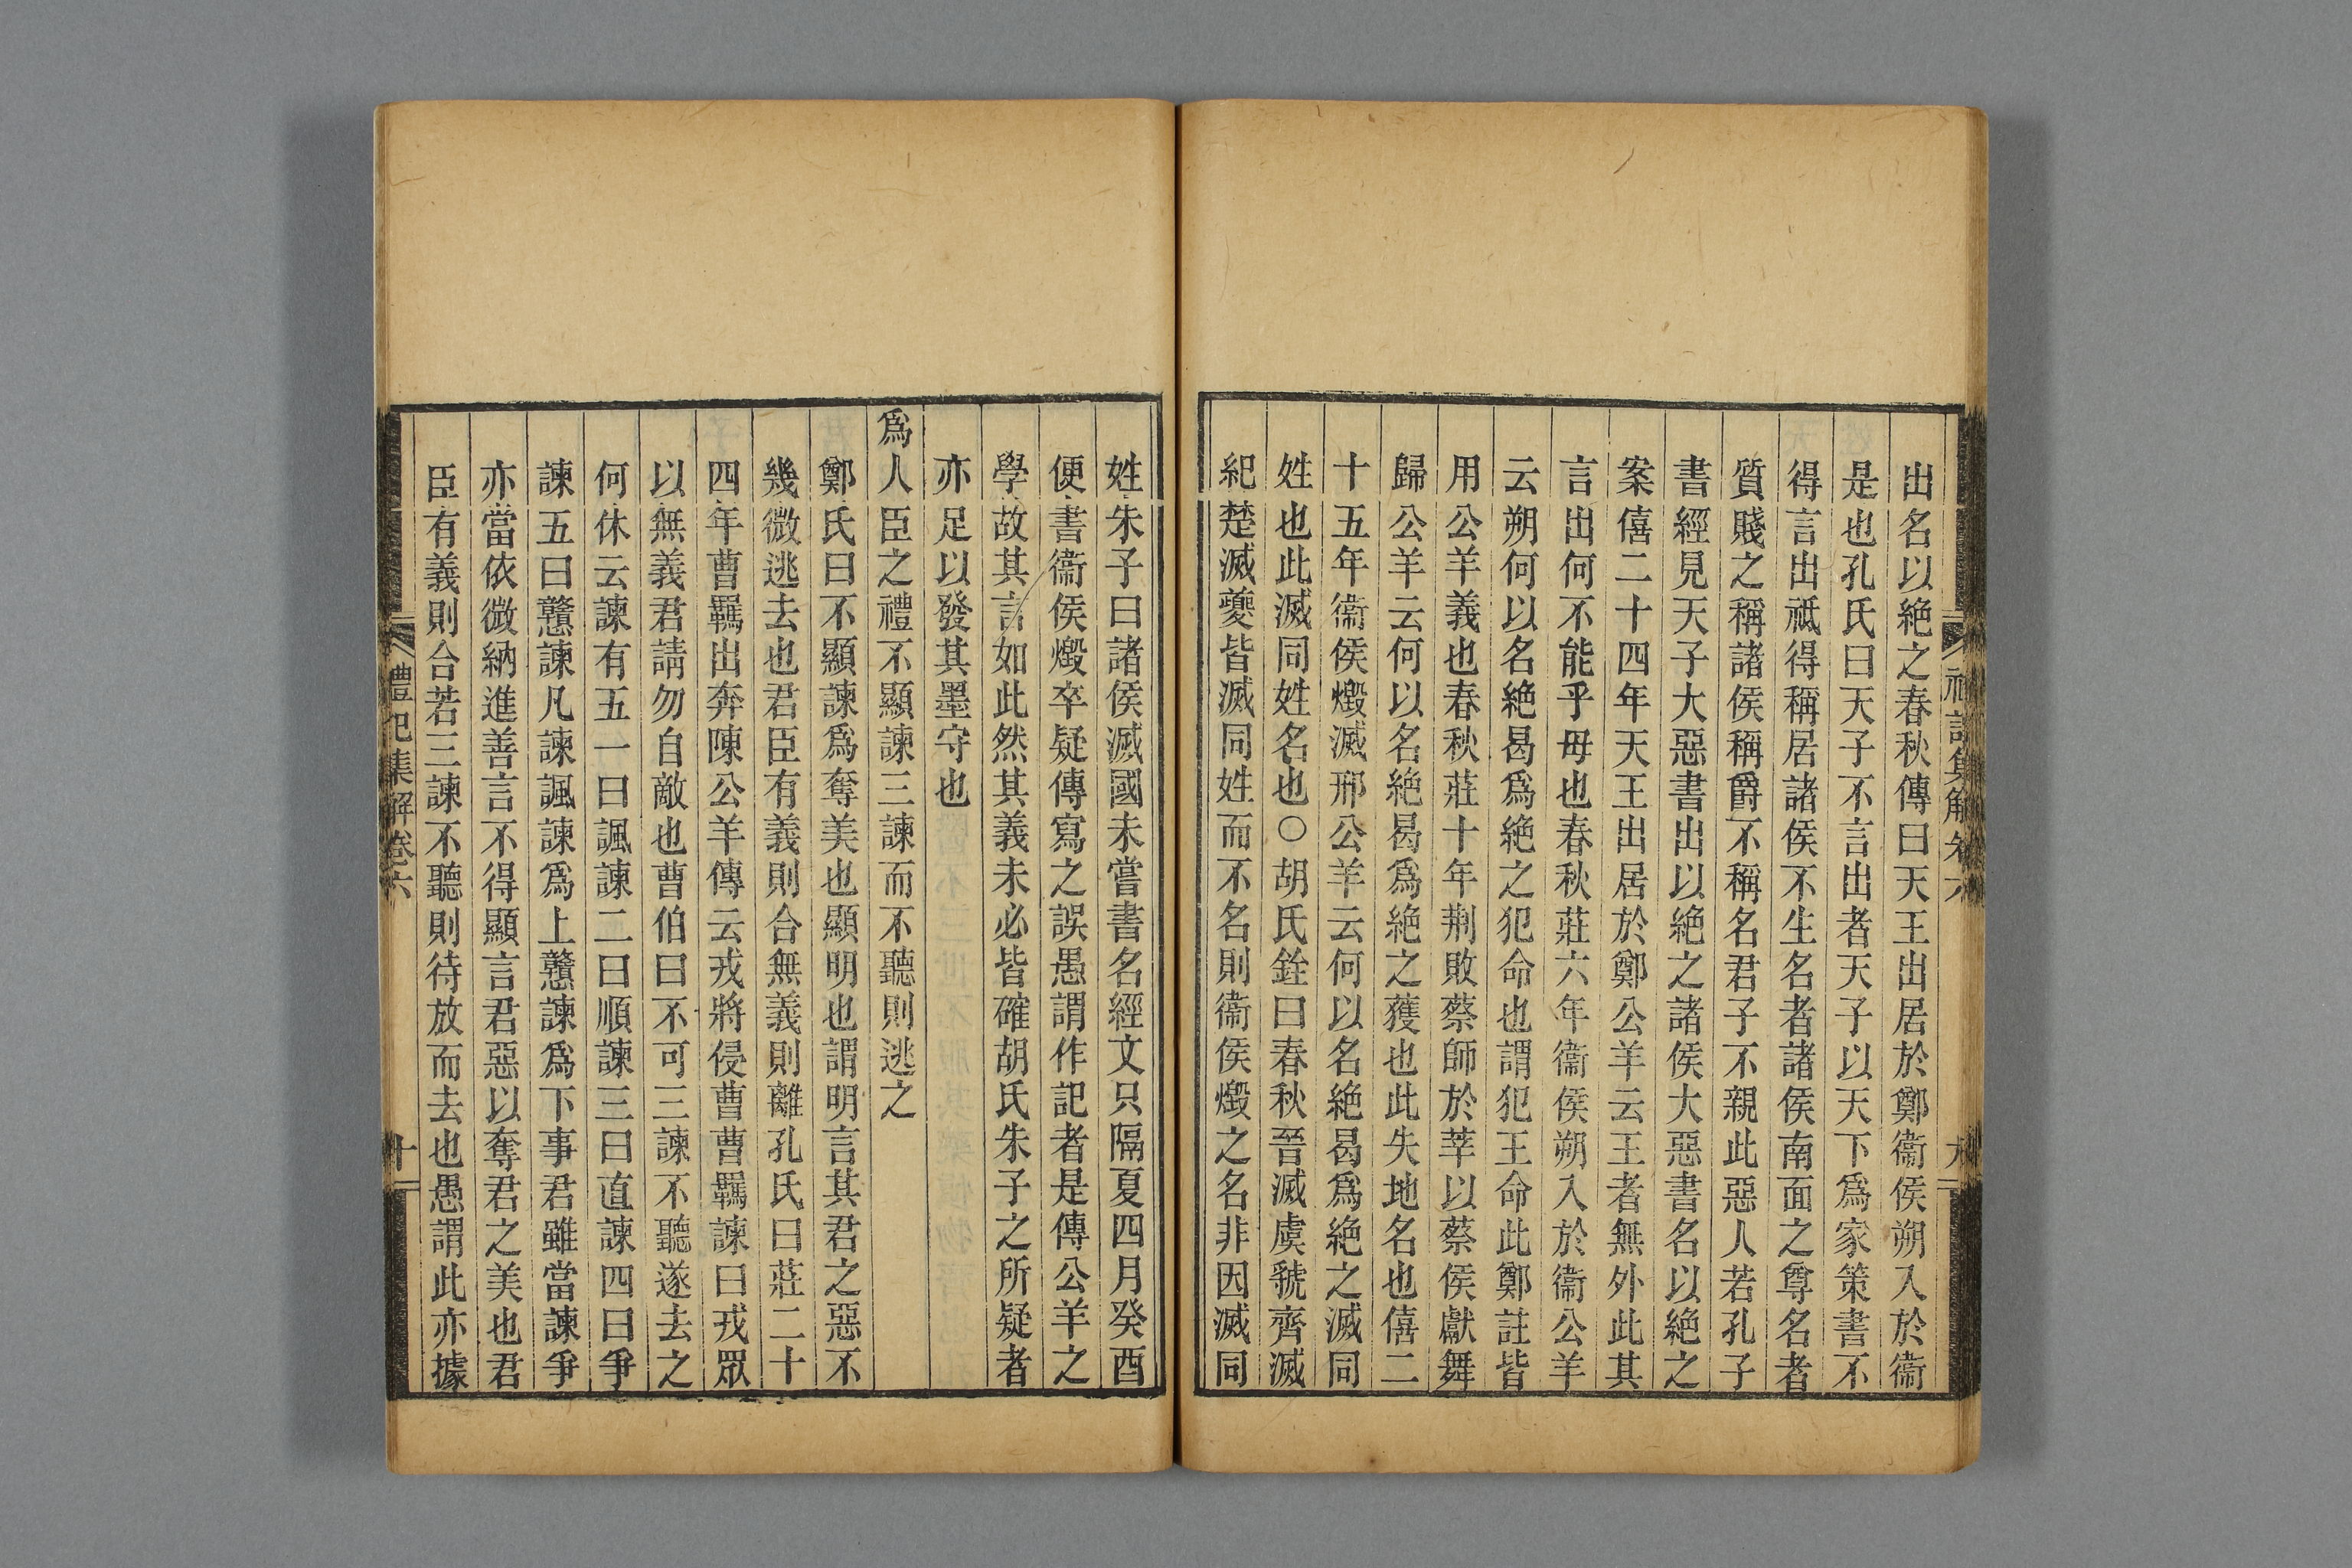 出名以絶之春秋傳曰天王出居於鄭衞侯朔入於衞
是也孔氏曰天子不言出者天子以天下爲家策書不
得言出祗得稱居諸侯不生名者諸侯南面之尊名者
質賤之稱諸侯稱爵不稱名君子不親此惡人若孔子
書經見天子大惡書出以絶之諸侯大惡書名以絶之
案僖二十四年天王出居於鄭公羊云王者無外此其
言出何不能乎母也春秋莊六年衞侯朔入於衞公羊
云朔何以名絶曷爲絶之犯命也謂犯王命此鄭註皆
用公羊義也春秋莊十年荆敗蔡師於莘以蔡侯獻舞
歸公羊云何以名絶曷爲絶之獲也此失地名也僖二
十五年衞侯燬滅邢公羊云何以名絶曷爲絶之滅同
姓也此滅同姓名也○胡氏銓曰春秋晉滅虞虢齊滅
紀楚滅夔皆滅同姓而不名則衞侯燬之名非因滅同
姓朱子曰諸侯滅國未嘗書名經文只隔夏四月癸酉
便書衞侯燬卒疑傳寫之誤愚謂作記者是傳公羊之
學故其言如此然其義未必皆確胡氏朱子之所疑者
亦足以發其墨守也
爲人臣之禮不顯諫三諫而不聽則逃之
鄭氏曰不顯諫爲奪美也顯明也謂明言其君之惡不
幾微逃去也君臣有義則合無義則離孔氏曰莊二十
四年曹羈出奔陳公羊傳云戎將侵曹曹羈諫曰戎眾
以無義君請勿自敵也曹伯曰不可三諫不聽遂去之
何休云諫有五一曰諷諫二曰順諫三曰直諫四曰爭
諫五曰戇諫凡諫諷諫爲上戇諫爲下事君雖當諫爭
亦當依微納進善言不得顯言君惡以奪君之美也君
臣有義則合若三諫不聽則待放而去也愚謂此亦據
禮記集解卷六
十